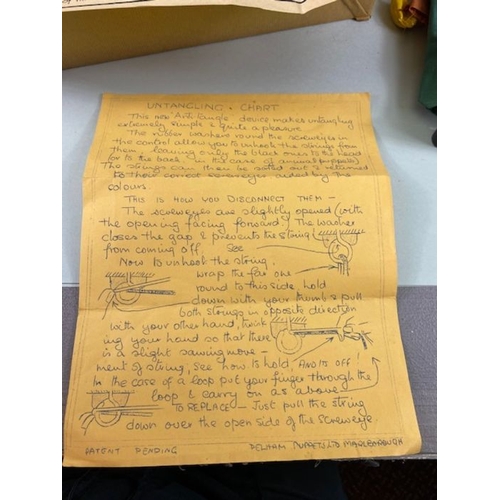 UNTANGLING. CHART
This new Anti tangle device makes untangling
extremely simple & quite a pleasure.
The rubber washers round the screweyes in
the control allow you to unhook the strings from
them, leaving only the black ones to the head
(or to the back in the case of animal puppets)
The strings can then be sorted out & returned
to their correct screweyes aided by the
colours.
THIS IS HOW YOU DISCONNECT THEM –
The screweyes are slightly opened (with
the opening facing forward. The washer
closes the gap & prevents the string
from coming off. See
Now to unhook the string,
wrap the far one
round to this side, hold
down with your thumb & pull
both strings in opposite direction
with your other hand, twist
ing your hand so that there
is a slight sawing move –
ment of string, see how to hold, And its off!
In the case of a loop put your finger through the
loop & carry on as above
TO REPLACE – Just pull the string
down over the open side of the screweye.
PATENT PENDING
PELHAM PUPPETS LTD MARLBOROUGH